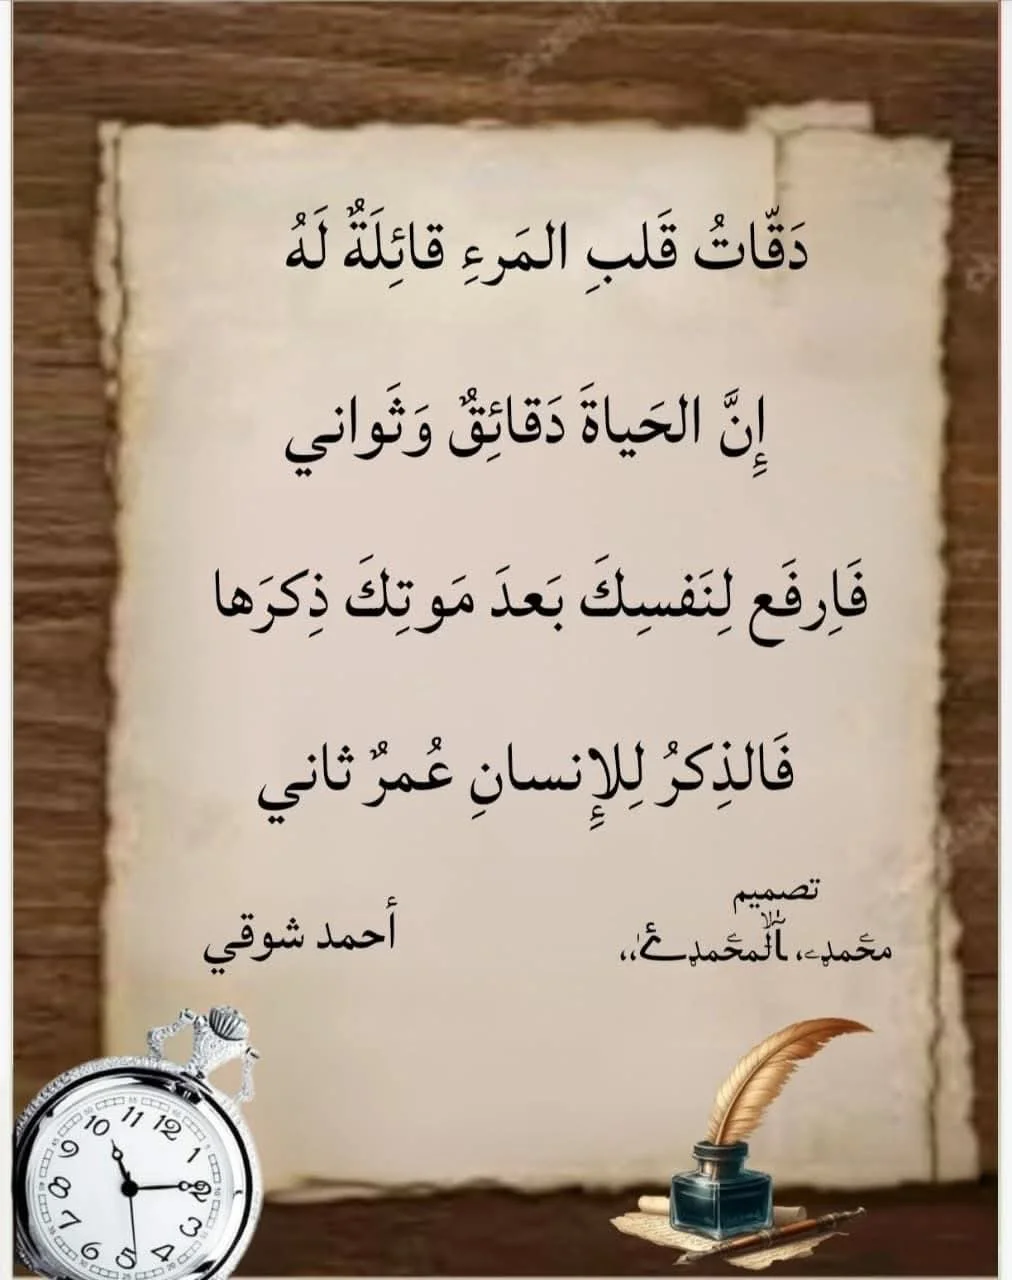 دَقّاتُ قَلبِ المَرءِ قائِلَةٌ لَهُ
إِنَّ الحَياةَ دَقائِقٌ وَثَواني
فَاِرفَع لِنَفسِكَ بَعدَ مَوتِكَ ذِكرَها
فَالذِكرُ لِلإِنسانِ عُمرٌ ثاني
تصميم
محمد، المحمدي،،
أحمد شوقي
10 11 12
9 1
8 2
7 3
6 5 4